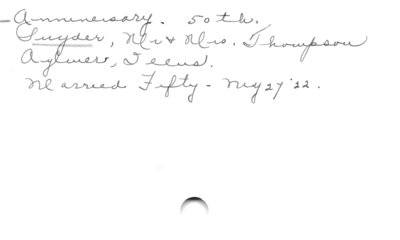 - Anniversary. 50th.
Snyder, Mr & Mrs. Thompson
Aylmer,
Married Fifty - My 27 '22.